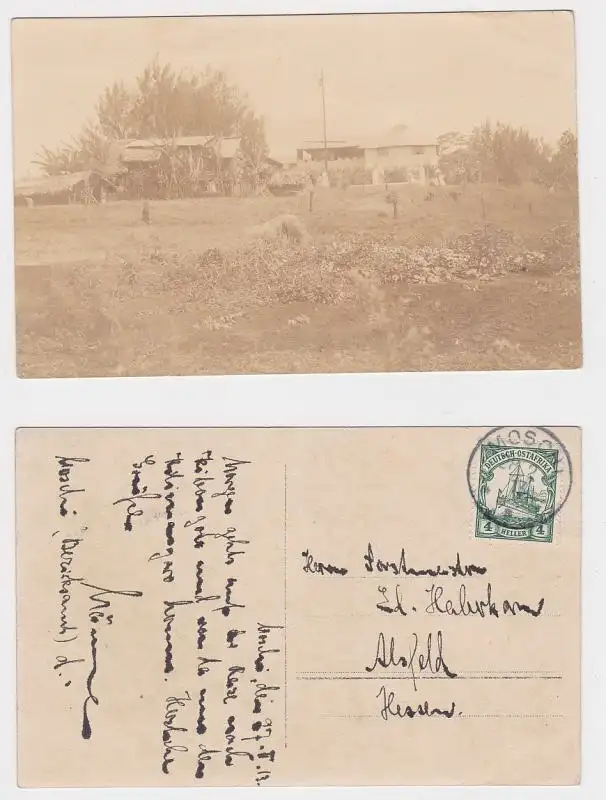 MOSCHI
DEUTSCH-OSTAFRIKA
4 HELLER 4
Herrn Forstmeister
Ed. Haberkorn
Alsfeld
Hessen.
Moschi, den 27. II. 13.
Morgen geht's auf die Reise nach
und von da aus den
Kilimanjaro Herzliche
Grüße
Moschi (Bezirksamt) d.